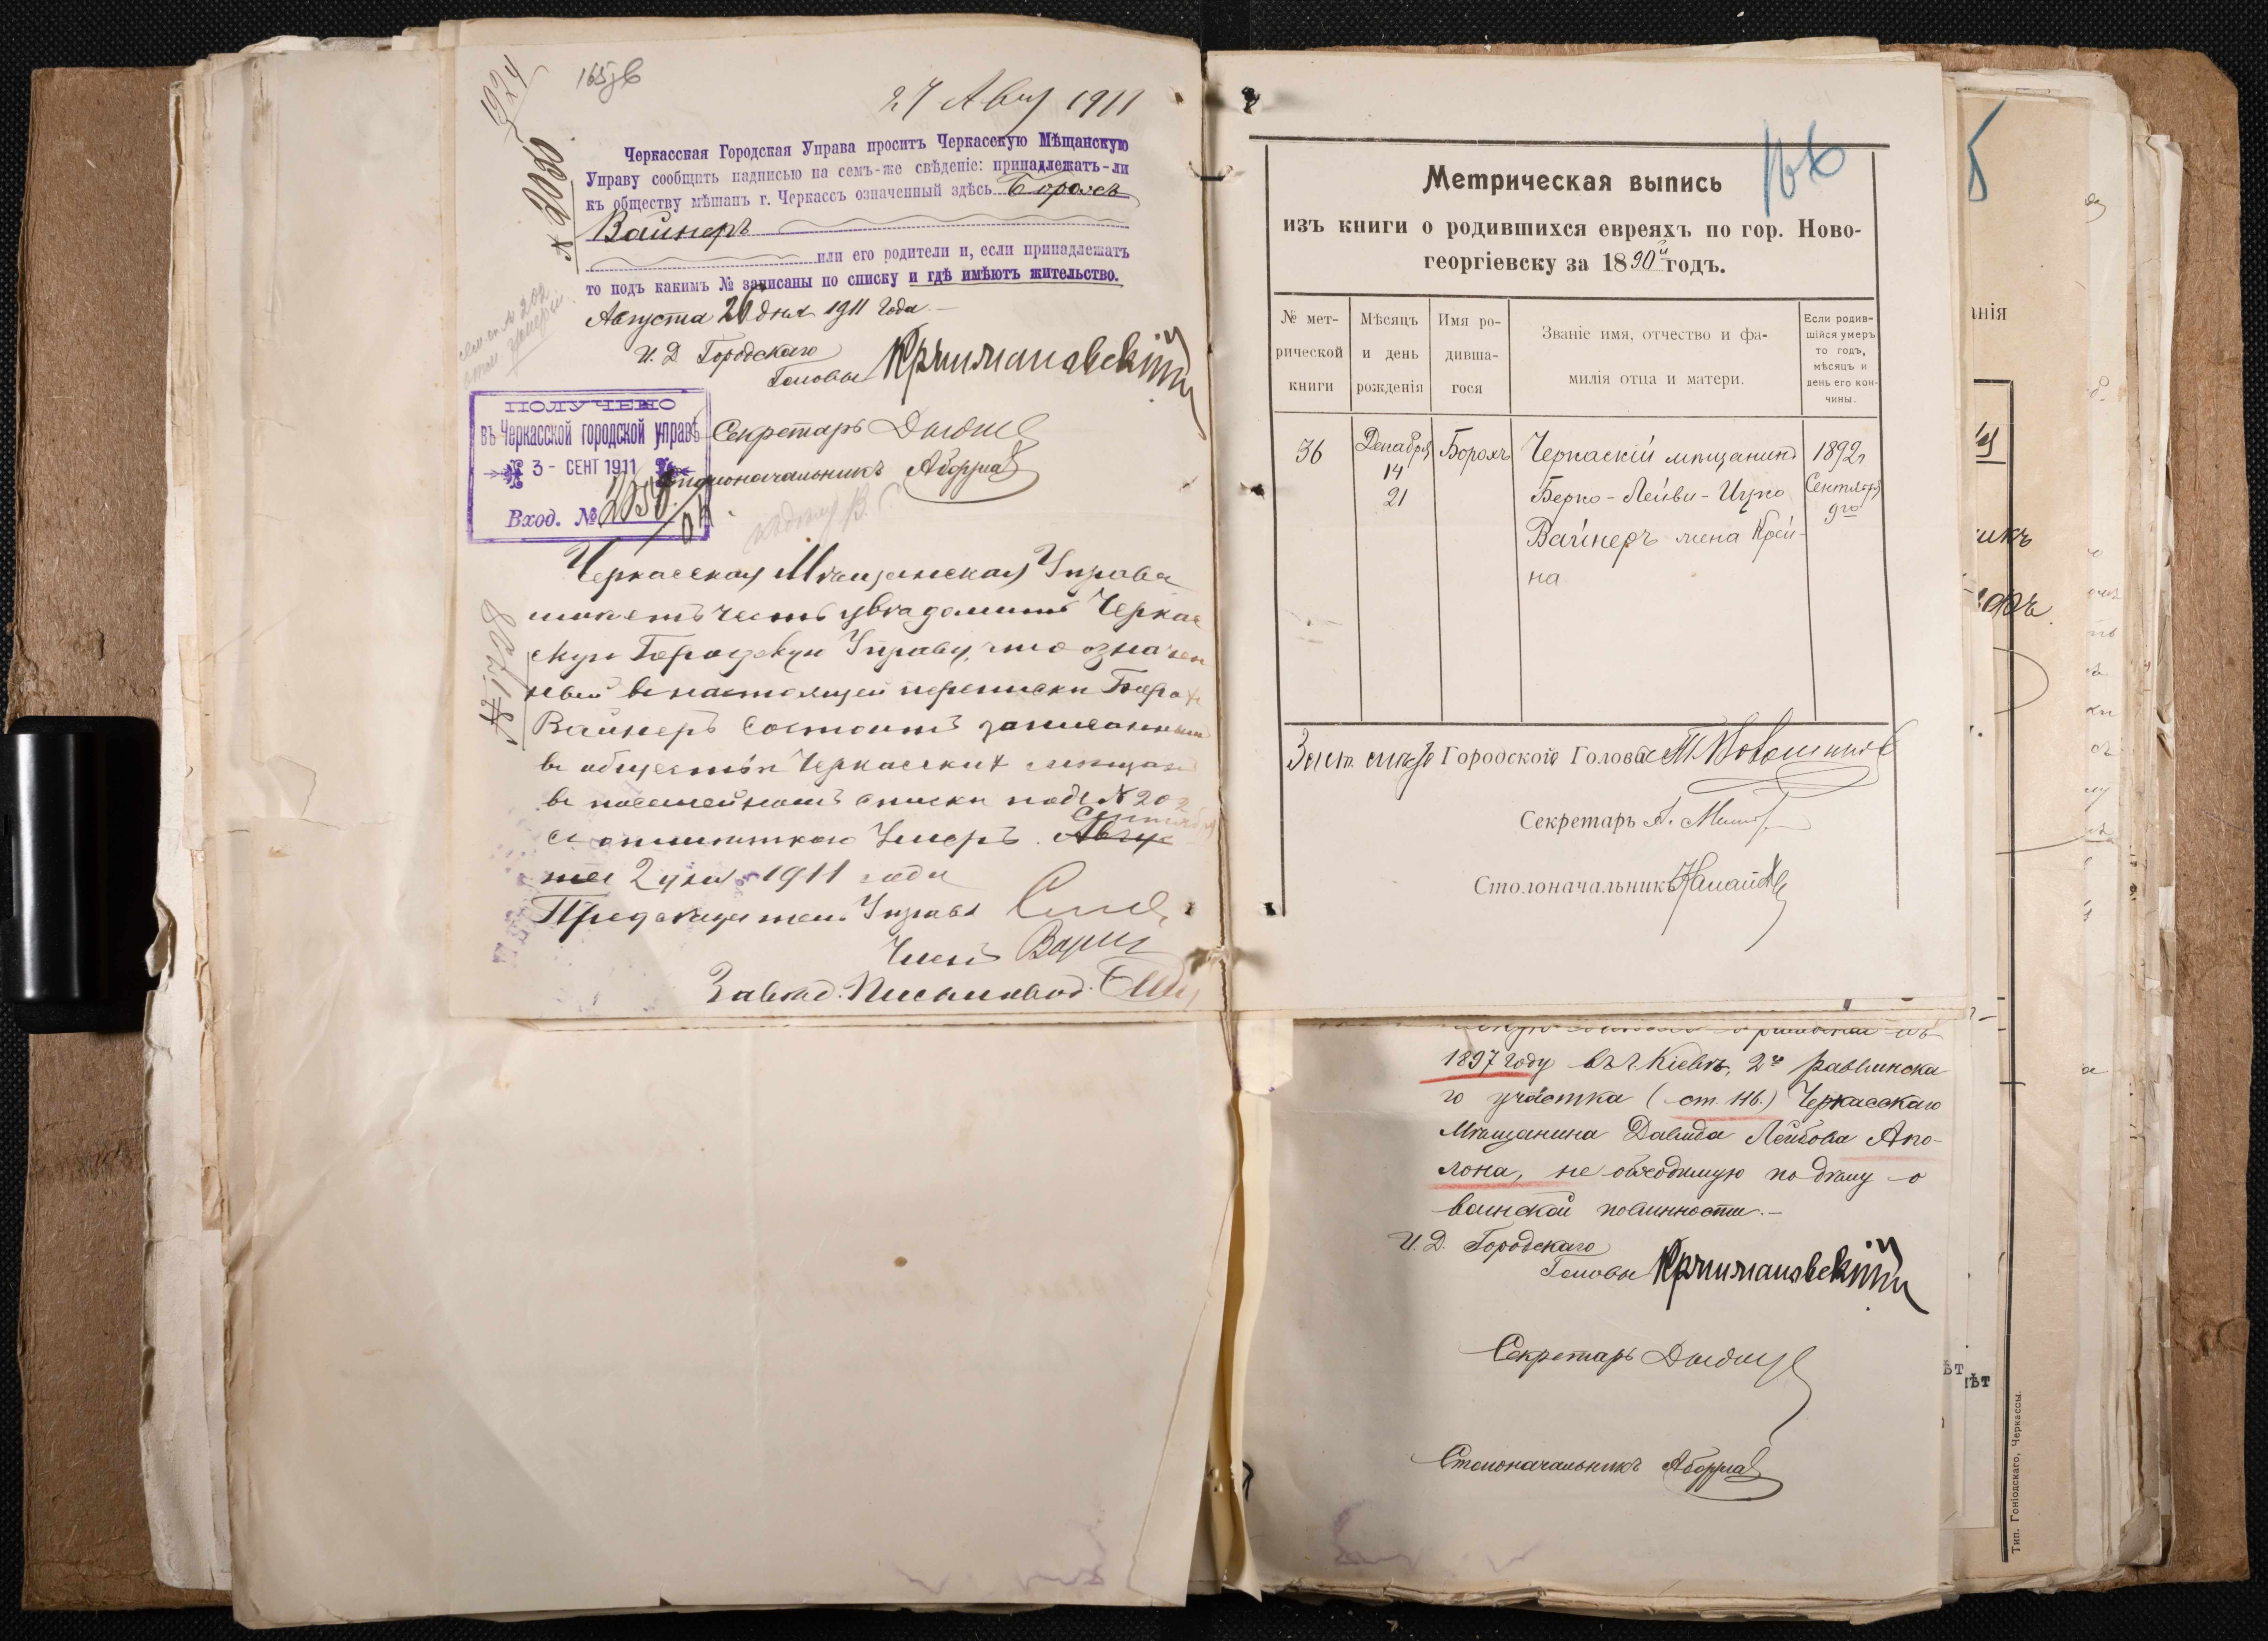 165 об
27 Авг 1911
3924
№ 2080
Черкасская Городская Управа проситъ Черкасскую Мѣщанскую
Управу сообщить надписью на семъ-же свѣденіе: принадлежатъ-ли
къ обществу мѣщанъ г. Черкассъ означенный здѣсь Борохъ
Вайнеръ
или его родители и, если принадлежатъ
то подъ какимъ № записаны по списку и гдѣ имѣютъ жительство.
Августа 26 дня 1911 года
И. Д. Городскаго
Головы Кршимановскій
ПОЛУЧЕНО
въ Черкасской городской управѣ
3 - СЕНТ 1911
Вход. №
Секретарь
Столоначальникъ
Черкасская Мѣщанская Управа
имѣетъ честь увѣдомить Черкас
скую Городскую Управу, что означен
ный въ настоящей переписки Борохъ
Вайнеръ состоитъ записаннымъ
въ обществѣ Черкасскихъ мѣщанъ
въ посемейномъ списки подъ № 202
съ отмѣткою Умеръ. Авгус
Сентября
та 2 дня 1911 года
№ 1708
Предсѣдатель Управы
Членъ
Завѣд. Письмовод.
166
Метрическая выпись
изъ книги о родившихся евреяхъ по гор. Ново-
георгіевску за 1890й годъ.
№ мет-
рической
книги
Мѣсяцъ
и день
рожденія
Имя ро-
дивша-
гося
Званіе имя, отчество и фа-
милія отца и матери.
Если родив-
шійся умеръ
то годъ,
мѣсяцъ и
день его кон-
чины.
36
Декабря
14
21
Борохъ
Черкаскій мѣщанинъ
Берко-Лейви-Ицко
Вайнеръ жена Крей-
на
1892г
Сентября
9го
Городского Головы
Секретарь
Столоначальникъ
1897 году въ г. Кіевѣ, 2го раввинска
го участка (ст. 116.) Черкасскаго
Мѣщанина Давида Лейбова Апо-
лона, не обходимую по дѣлу о
воинской повинности.-
И. Д. Городскаго
Головы Кршимановскій
Секретарь
Столоначальникъ
Тип. Гоніодскаго, Черкассы.